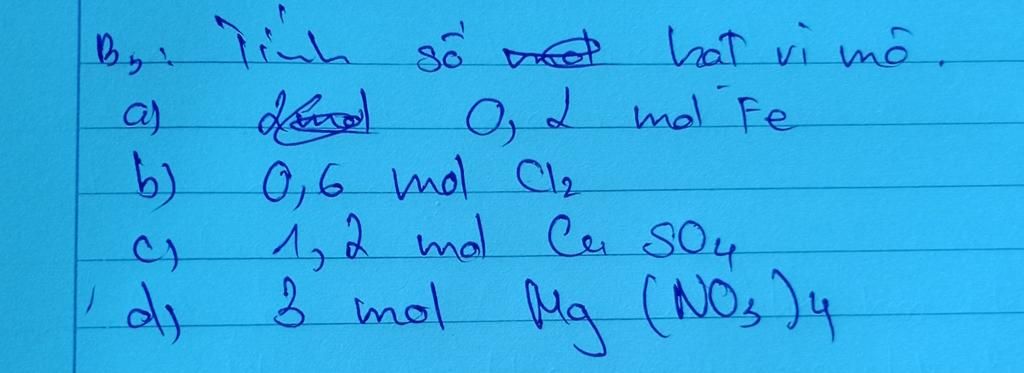 B5: Tính số hạt vi mô.
a) 0,2 mol Fe
b) 0,6 mol Cl2
c) 1,2 mol Cu SO4
d) 3 mol Mg (NO3)4